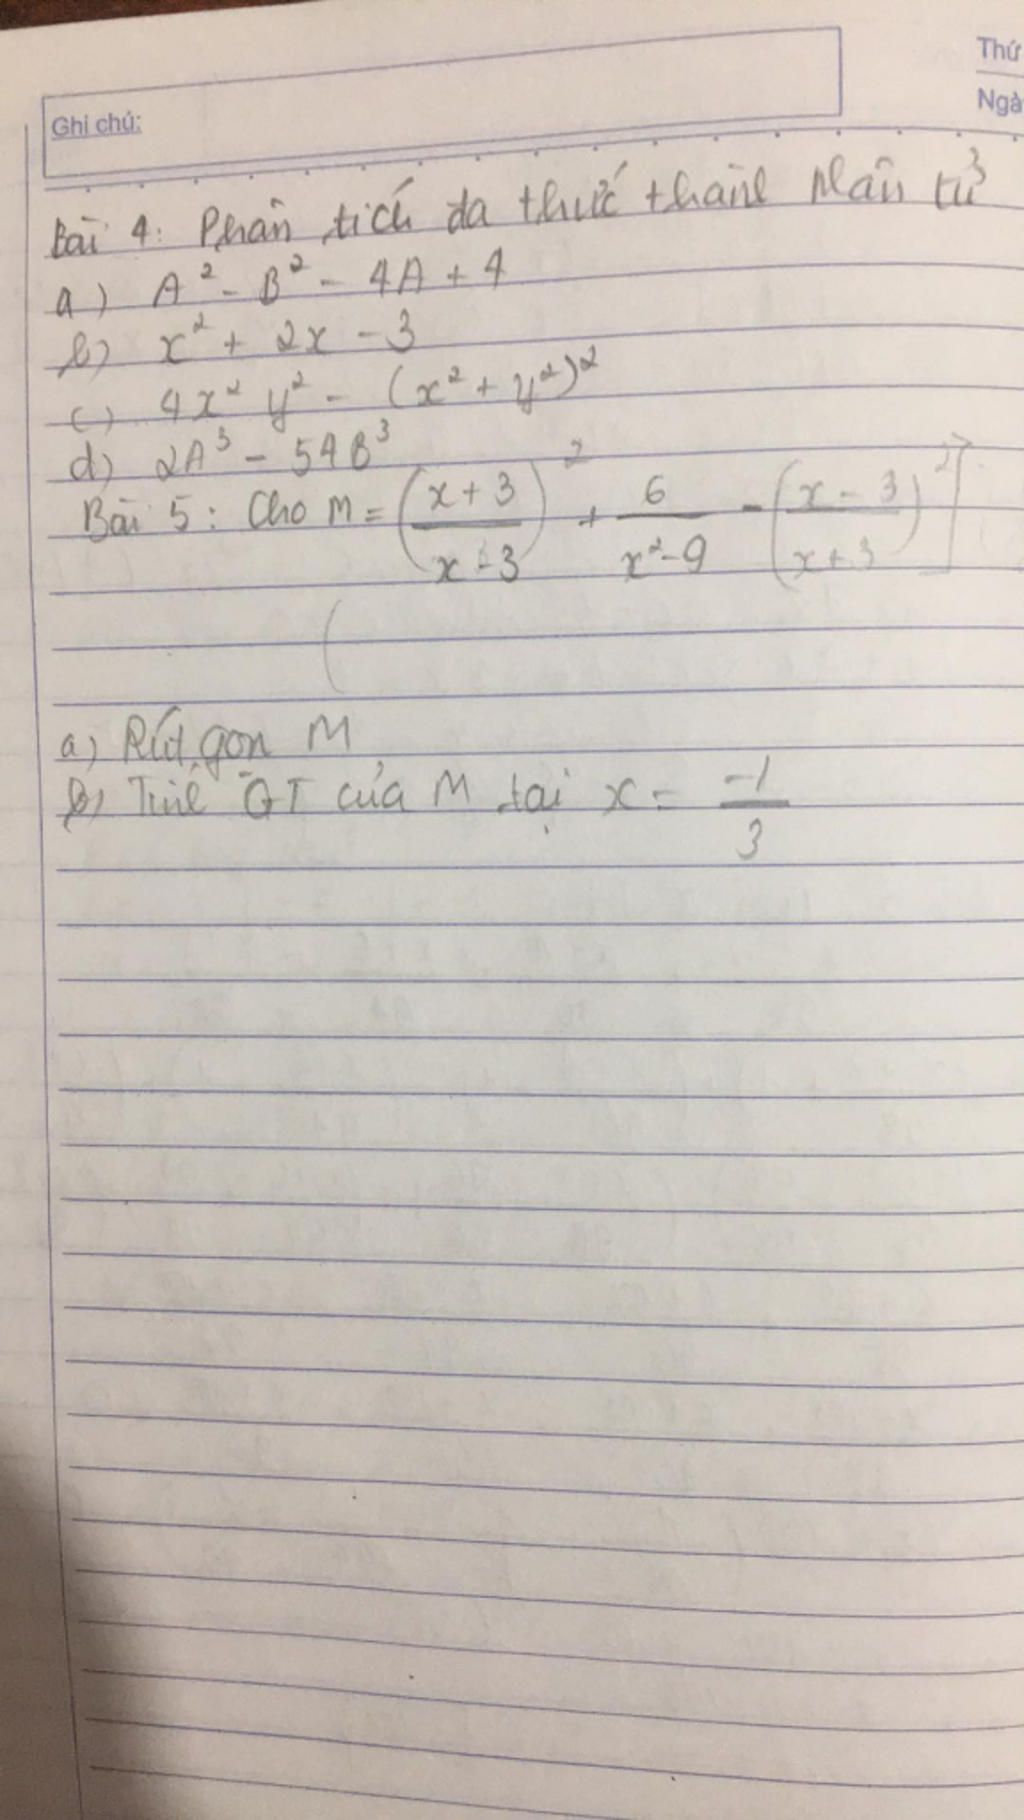 Thứ
Ghi chú:
Ngà
Bài 4: Phân tích đa thức thành nhân tử
a) A² - B² - 4A + 4
b) x² + 2x - 3
c) 4x² y² - (x² + y²)²
d) 2A³ - 54B³
Bài 5: Cho M = ((x + 3)/(x - 3))² + 6/(x² - 9) - ((x - 3)/(x + 3))² ]
(
a) Rút gọn M
b) Tính GT của M tại x = -1/3